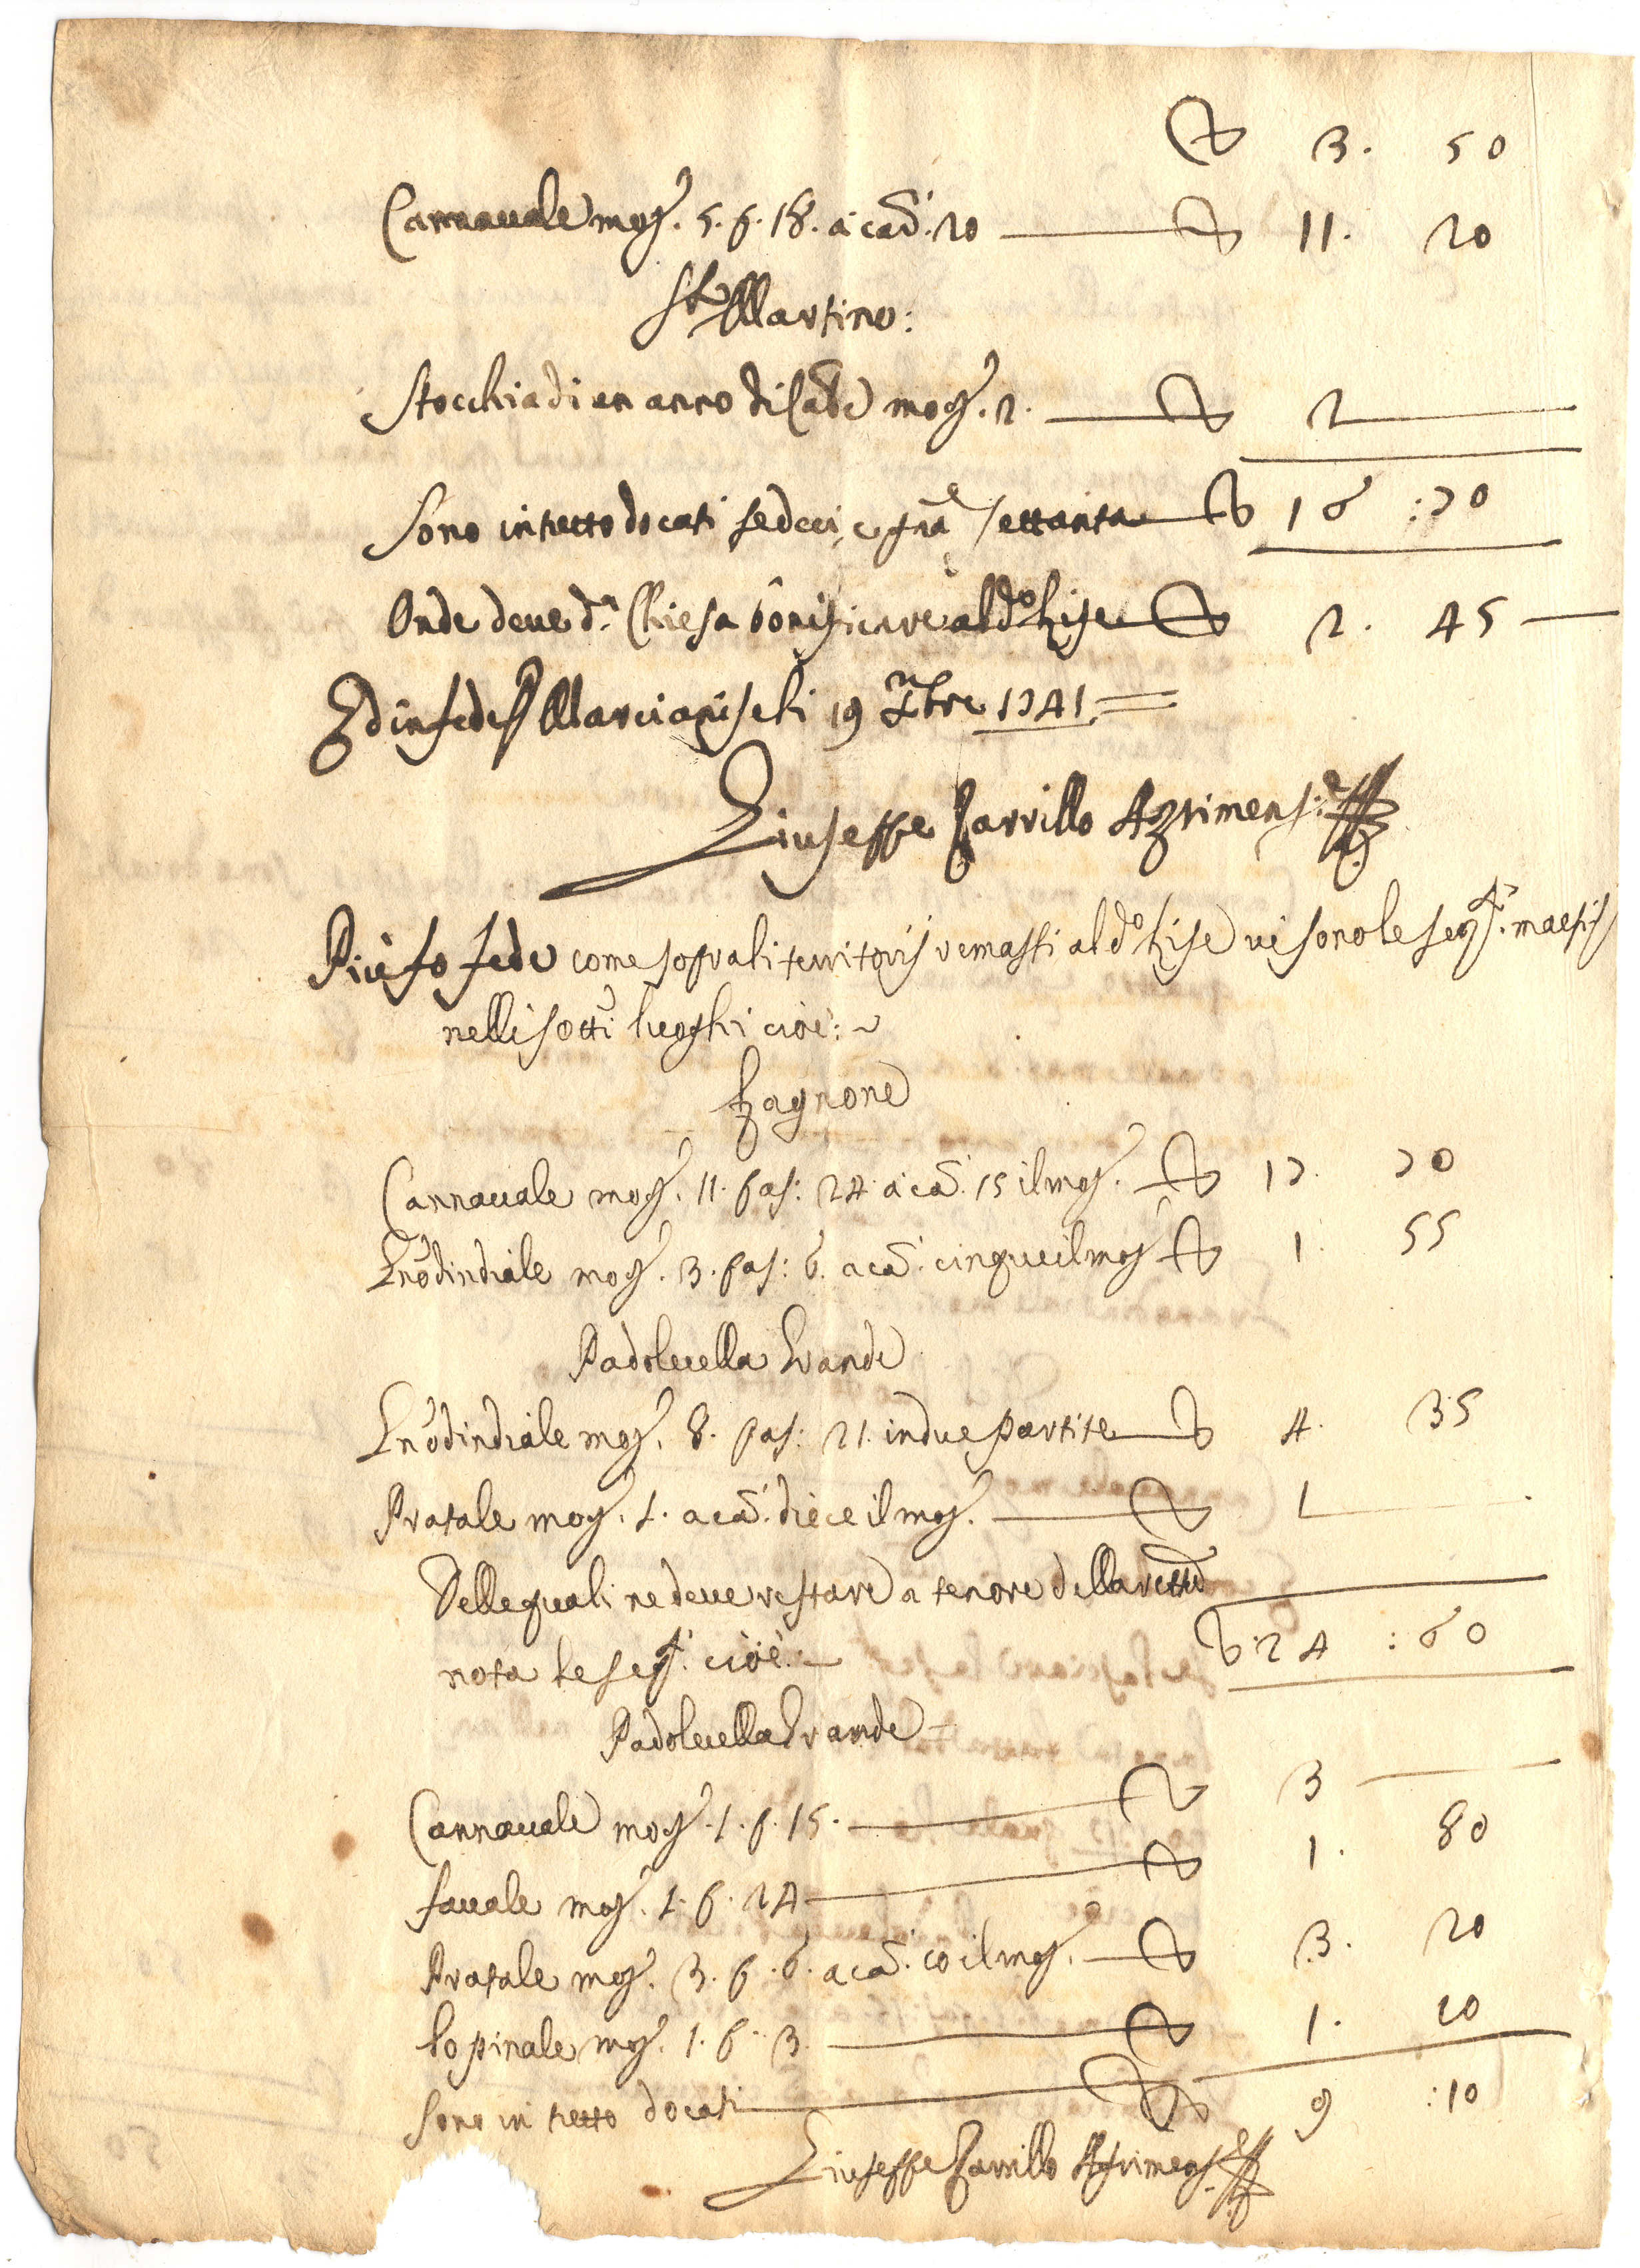 D. 3. 50
Cannauale mog. 5. p. 18. a carl. 20 D. 11. 20
S. Martino:
Stocchia di un anno di mog. 2. D. 2
Sono in tutto docati sedeci, e gna settanta D. 16 : 70
Onde deve d.a Chiesa bonificare al d.o Lise D. 2. 45
Ed in fede Marcianise li 19 Xbre 1741
Giuseppe Zarrillo Agrimens.
Più fo fede come sopra li territorij remasti al d.o Lise vi sono le seg.ti maesi
nelli sotti luoghi cioè:
Lagnone
Cannauale mog. 11. pas: 24. a ca. 15 il mog. D. 17. 70
Granodindiale mog. 3. pas: 6. a ca. cinque il mog. D. 1. 55
Padoluella Grande
Granodindiale mog. 8. pas: 21. in due partite D. 4. 35
Pratale mog. 1. a ca. diece il mog. D. 1
Delle quali ne deve restare a tenore della
nota le seg.ti cioè: D. 24 : 60
Padoluella Grande
Cannauale mog. 1. p. 15. D. 3
fauale mog. 1. p. 24 D. 1. 80
Pratale mog. 3. p. 6. a ca. 10 il mog. D. 3. 20
Lopinale mog. 1. p. 3. D. 1. 10
Sono in tutto docati D. 9 : 10
Giuseppe Zarrillo Agrimens.